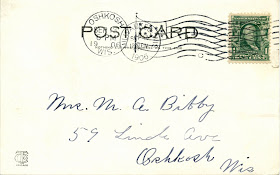 OSHKOSH
WIS.
1906
POST CARD
Mrs. M. A. Bibby
59 Linde Ave
Oshkosh
Wis